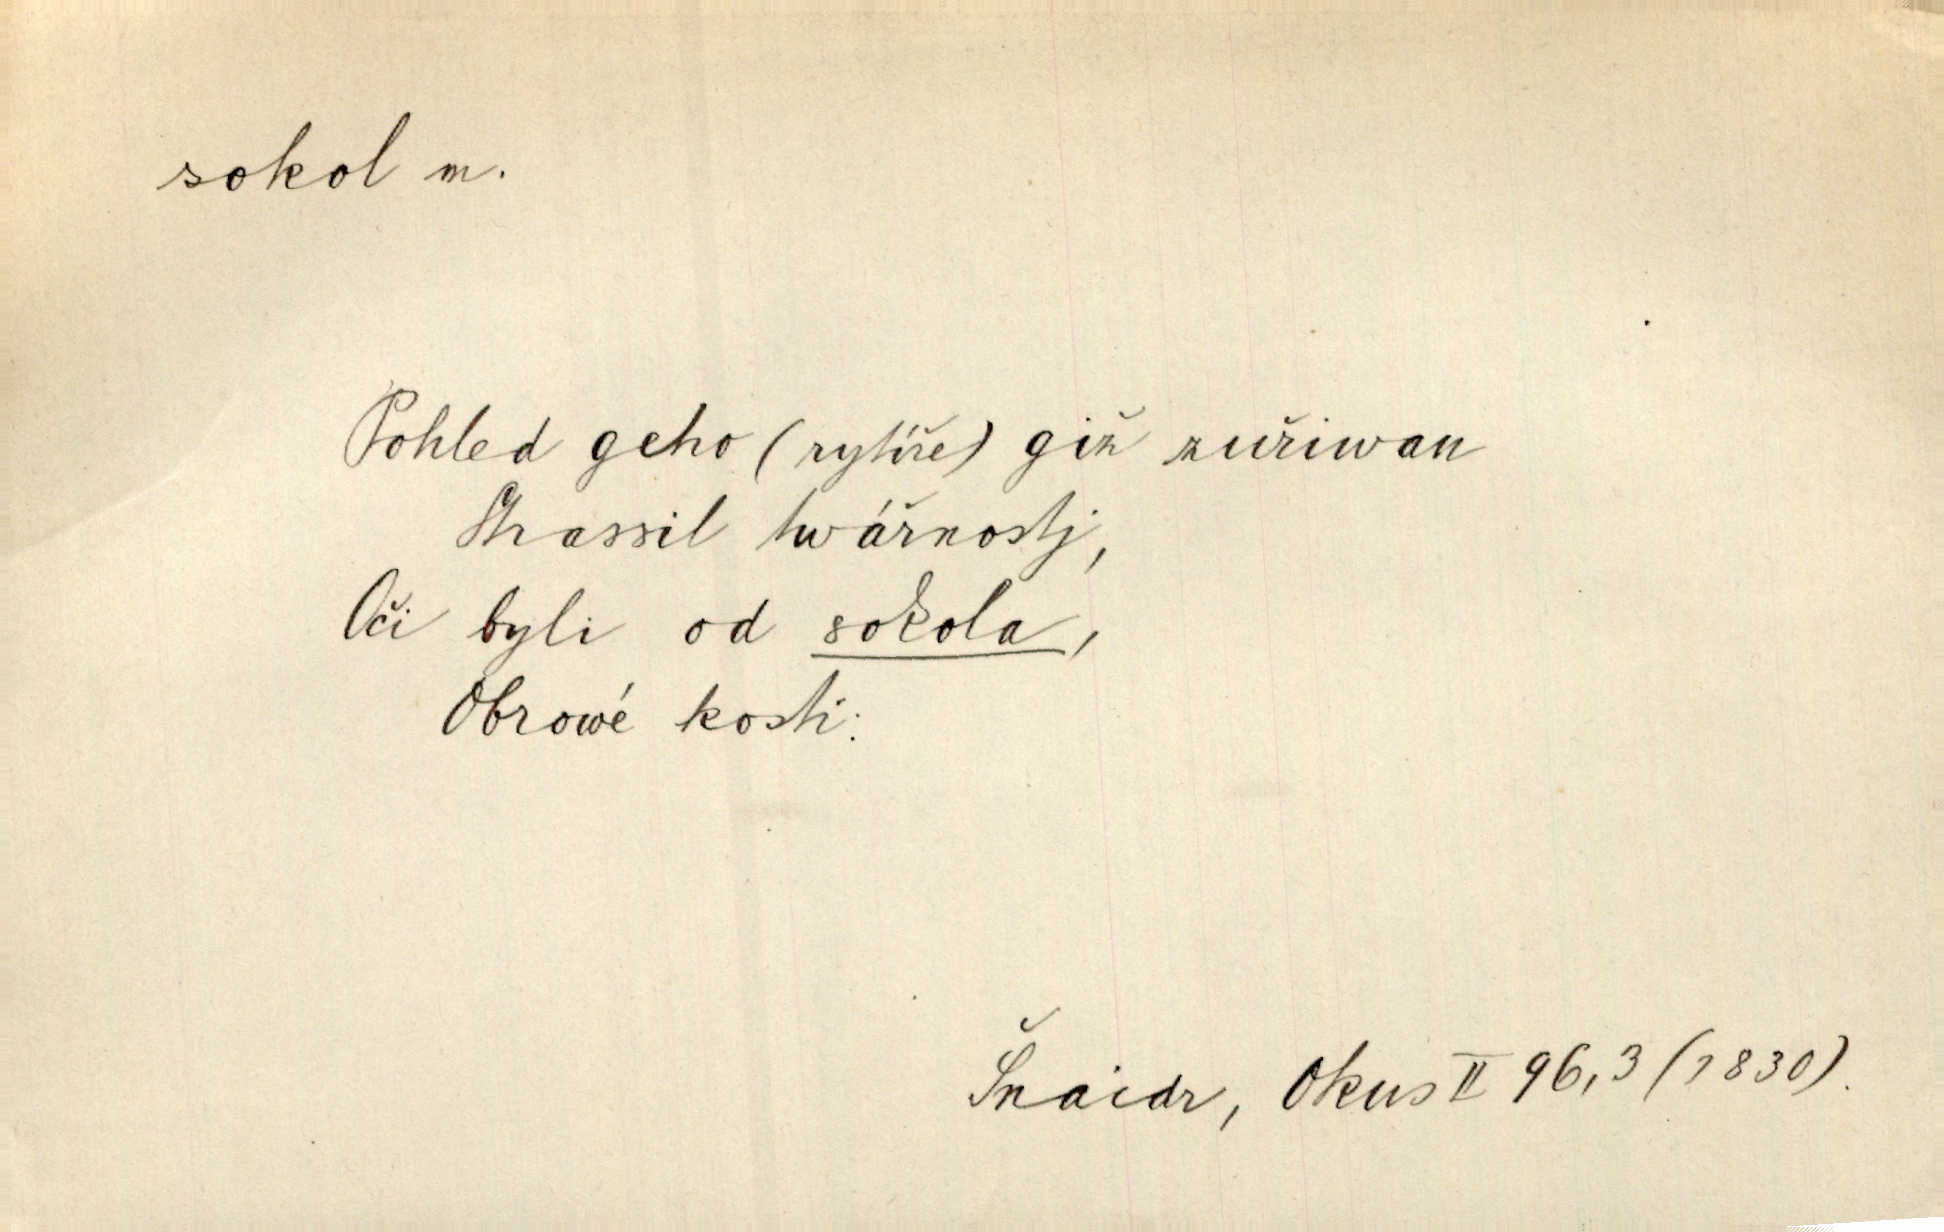 sokol m.
Pohled geho (rytíře) giž zuřiwan
Strassil twářnostj,
Oči byli od sokola,
Obrowé kosti:
Šnaidr, Okus II 96,3 (1830).